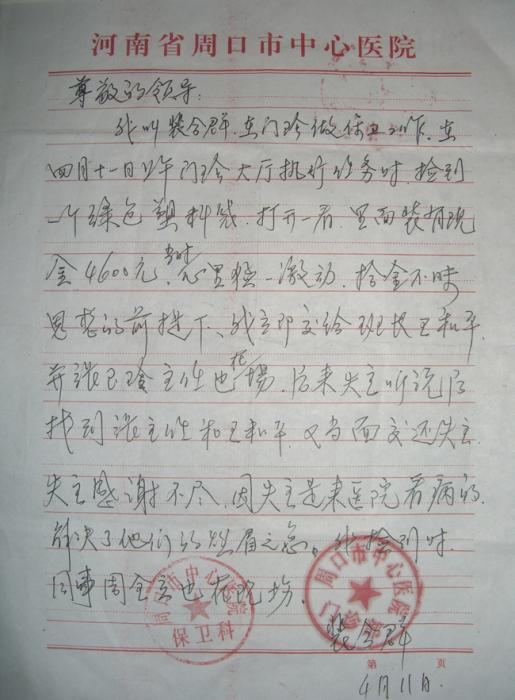 河南省周口市中心医院
尊敬的领导:
我叫裴全群.在门诊做保卫工作.在
四月十一日上午门诊大厅执行任务时.捡到
一个绿色塑料袋.打开一看.里面装有现
金4600元.当时心里猛一激动.拾金不昧
思想的前提下、我立即交给班长王和平.
并张主任也在場.后来失主听说后
找到张主任和王和平.又当面交还失主.
失主感谢不尽.因失主是来医院看病的.
解决了他们的燃眉之急。我捡到时.
同事周全意也在现场.
周口市中心医院
保卫科
周口市中心医院
门诊部
裴全群
第 页
4月11日.